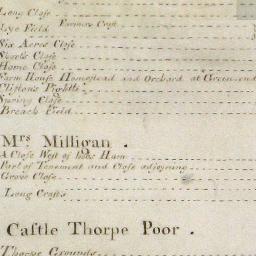 Long Close
Lye Field
Six Acres Close
Home Close
Farm House Homestead and Orchard at Greenend
Clifton's Pightle
Spring Close
Breach Field
Mrs Milligan .
A Close West of Ham
Part of Tenement and Close adjoining
Grove Close
Long Crofts
Castle Thorpe Poor .
Thorpe Grounds